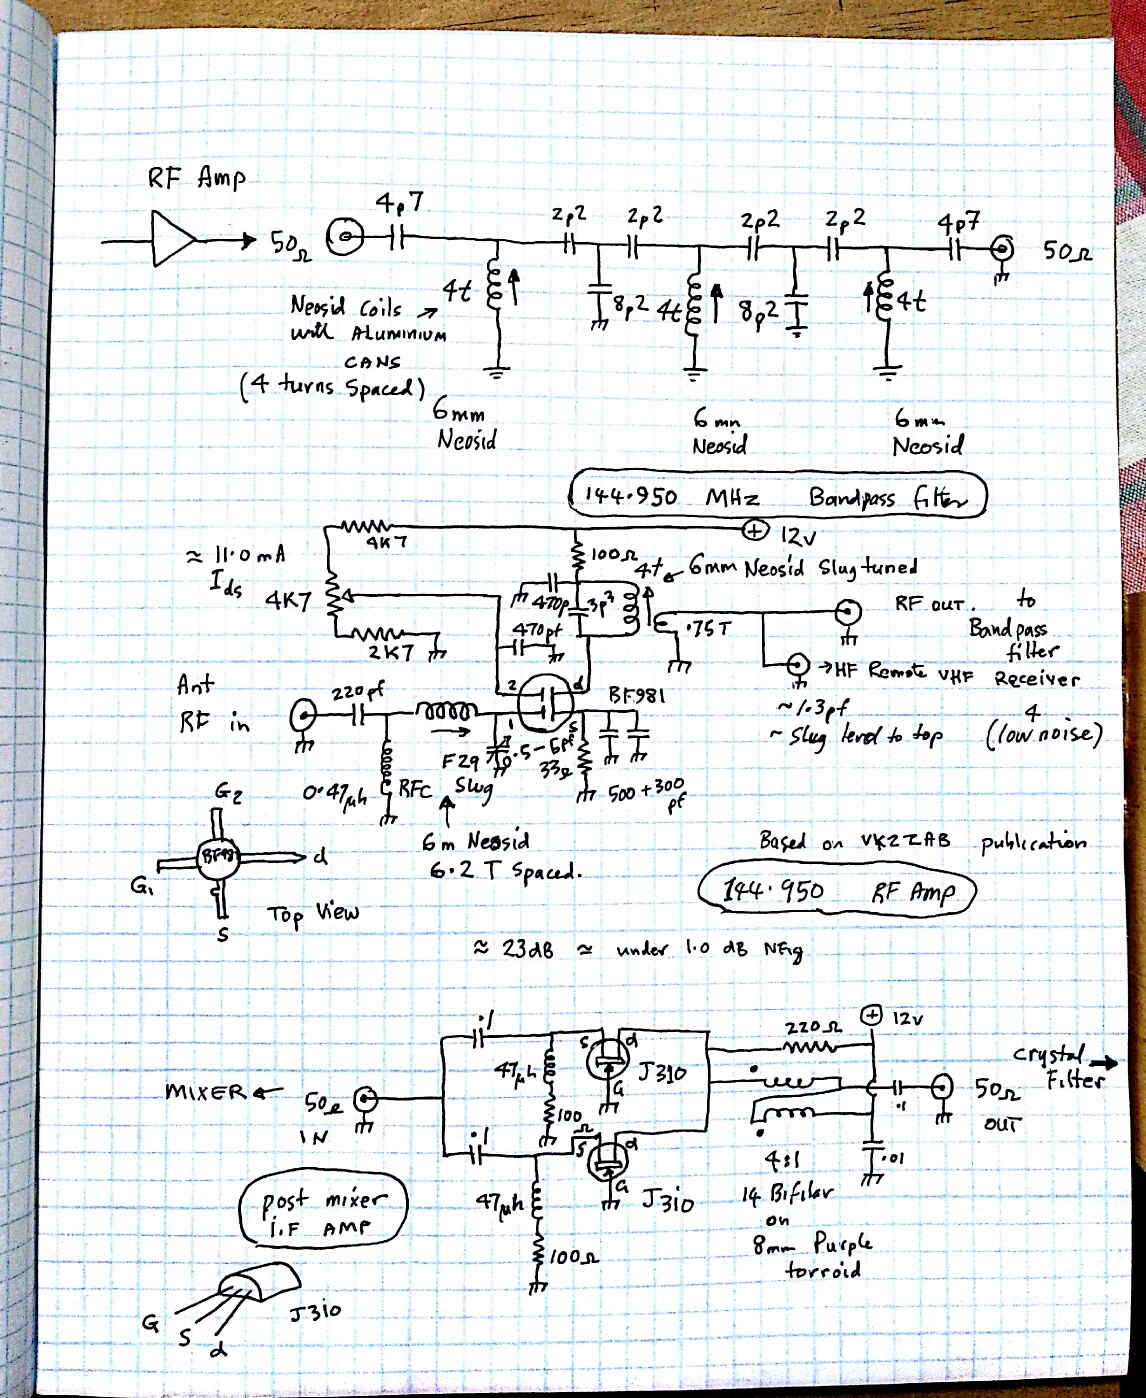 RF Amp
50Ω
4p7
2p2
2p2
2p2
2p2
4p7
50Ω
4t
8p2
4t
8p2
4t
Neosid Coils
with ALUMINIUM
CANS
(4 turns Spaced)
6mm
Neosid
6mm
Neosid
6mm
Neosid
144.950 MHz Bandpass filter
4K7
+ 12v
≈ 11.0 mA
Ids
100Ω
4t
6mm Neosid Slug tuned
4K7
470p
3p3
.75T
RF OUT. to
Bandpass
filter
470pf
2K7
→HF Remote VHF Receiver
Ant
RF in
220pf
2
d
BF981
1
S
~1.3pf
~ Slug level to top
4
(low noise)
F29
Slug
0.5-6pf
33Ω
500+300
pf
0.47µh
RFC
6m Neosid
6.2 T Spaced.
G2
BF981
d
G1
S
Top View
Based on VK2ZAB publication
144.950 RF Amp
≈ 23dB ≈ under 1.0 dB NFig
.1
S
d
G
J310
47µh
100Ω
220Ω
+ 12v
crystal
Filter
MIXER
50Ω
IN
.1
50Ω
OUT
.1
S
d
G
J310
47µh
100Ω
.01
4:1
14 Bifilar
on
8mm Purple
torroid
post mixer
i.F AMP
G
S
d
J310